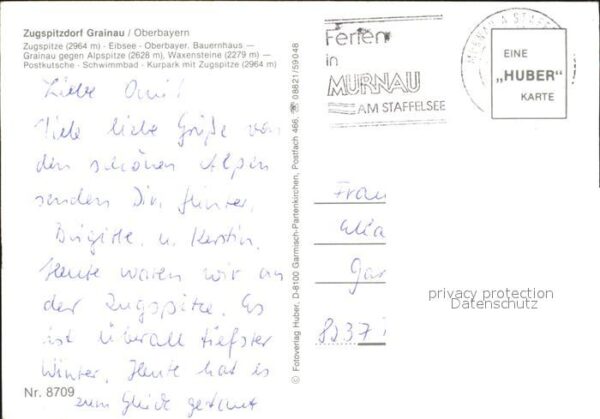 Zugspitzdorf Grainau / Oberbayern
Zugspitze (2964 m) - Eibsee - Oberbayer. Bauernhaus —
Grainau gegen Alpspitze (2628 m), Waxensteine (2279 m) —
Postkutsche - Schwimmbad - Kurpark mit Zugspitze (2964 m)
Liebe Omi!
Viele liebe Grüße von
den schönen Alpen
senden Dir, Günter,
Birgitte u. Kerstin.
Heute waren wir an
der Zugspitze. Es
ist überall tiefster
Winter. Heute hat es
zum Glück getaut
Nr. 8709
© Fotoverlag Huber, D-8100 Garmisch-Partenkirchen, Postfach 466, ☎ 08821/59048
Ferien
in
MURNAU
AM STAFFELSEE
MURNAU A STAFF
EINE
„HUBER"
KARTE
Frau
Gar
8237
privacy protection
Datenschutz